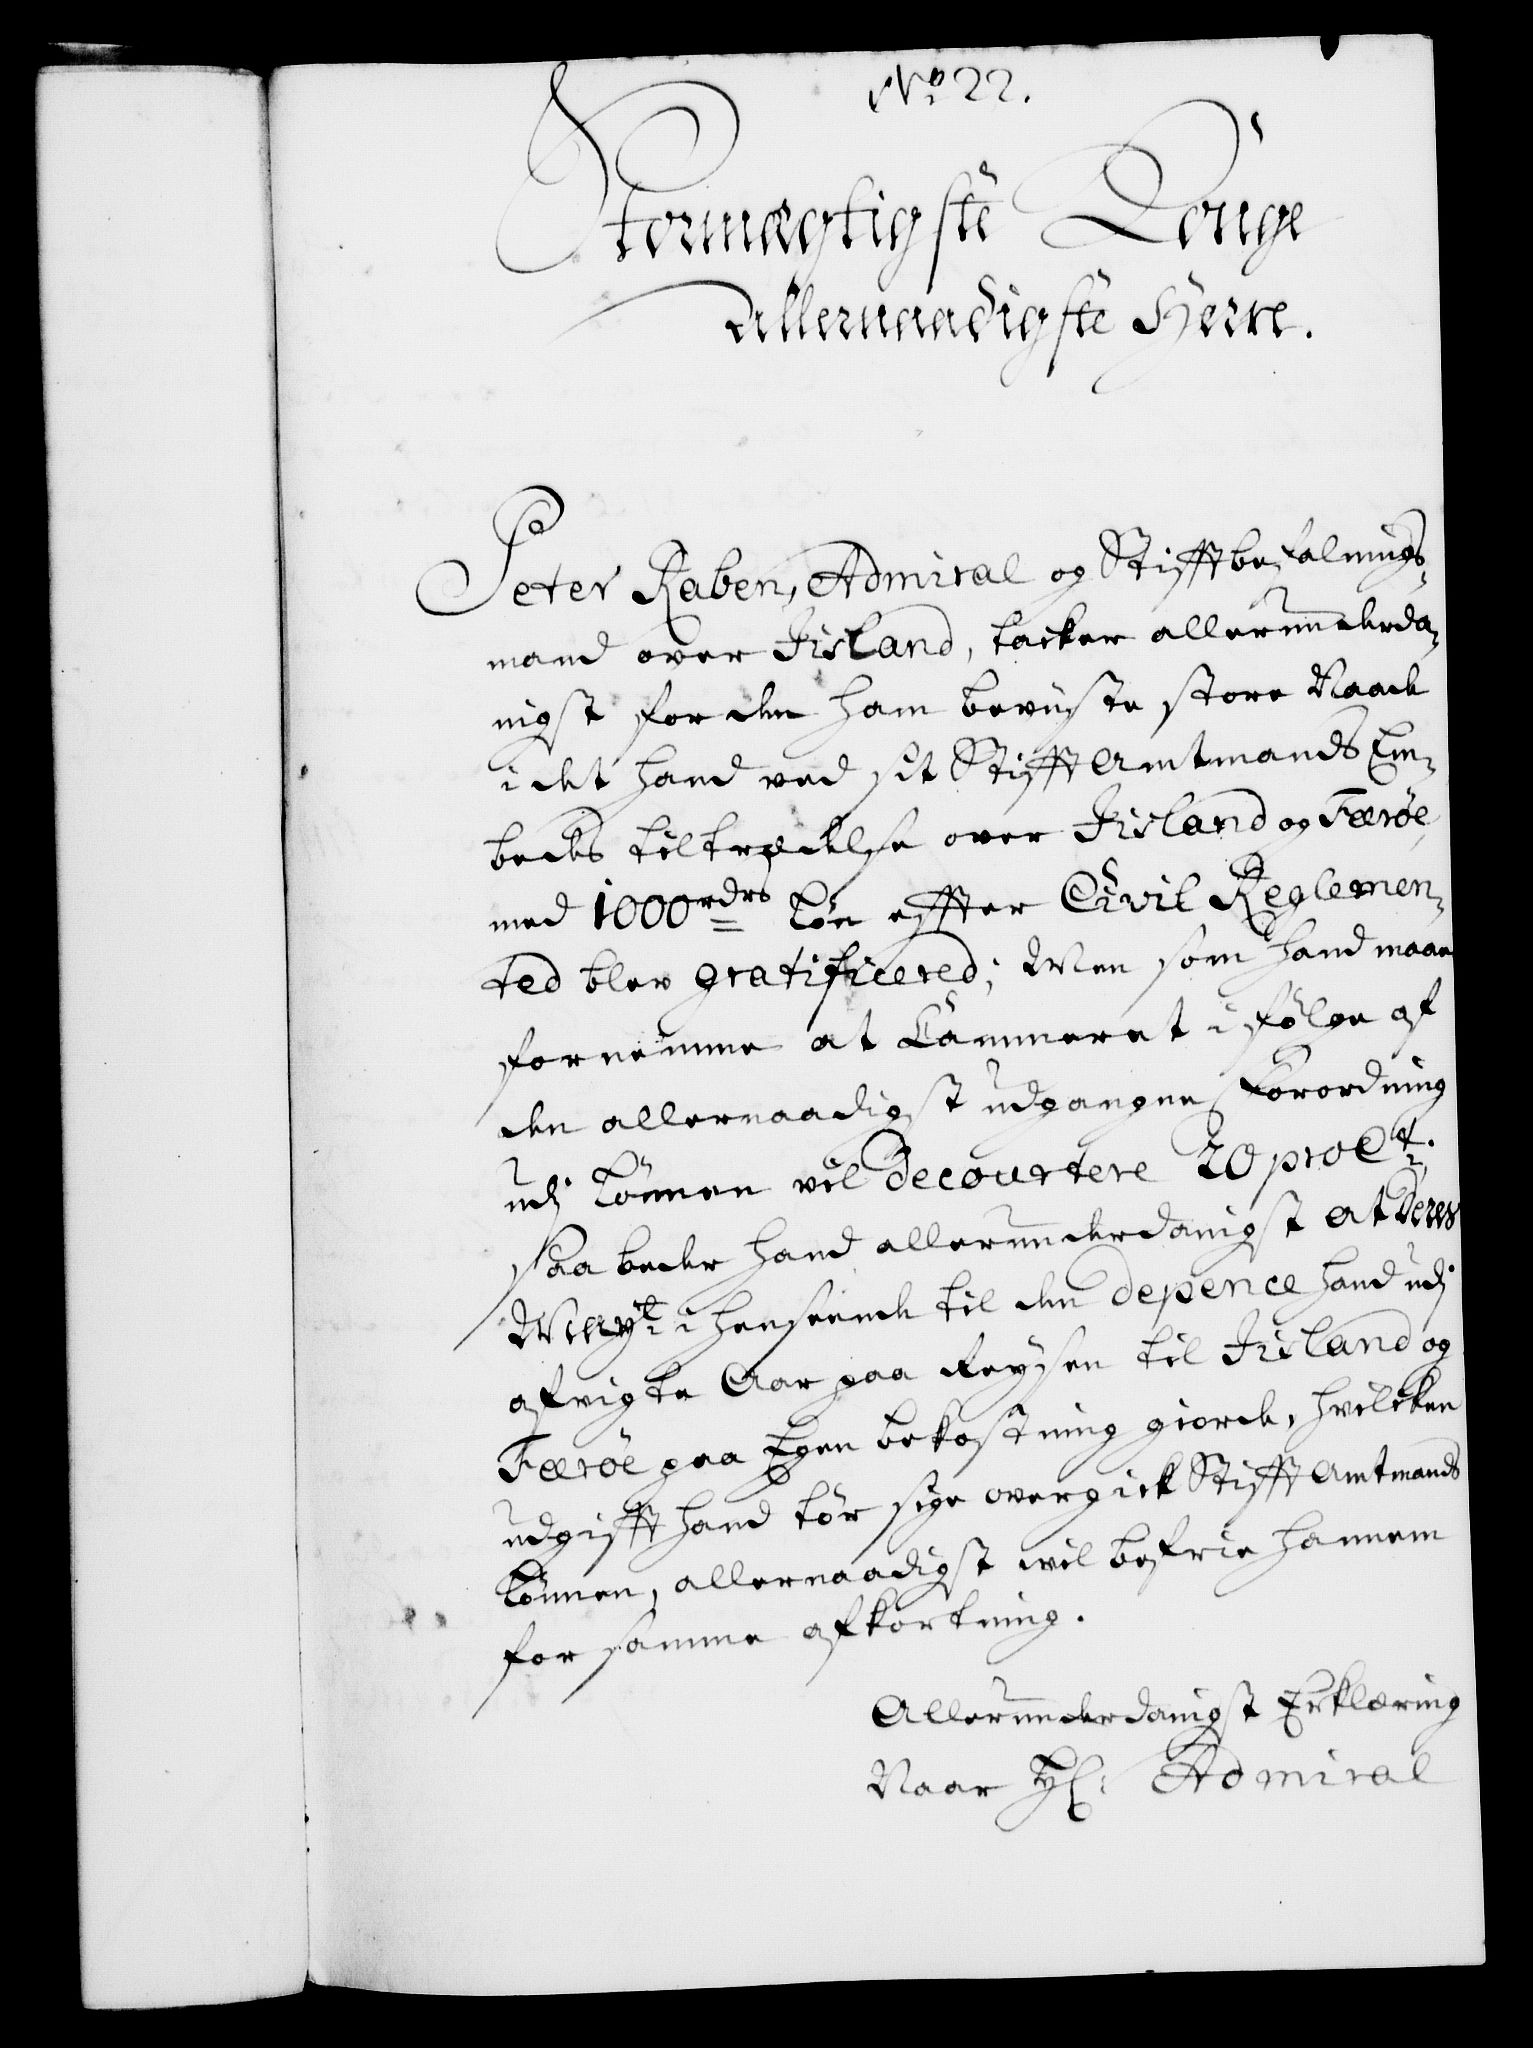 No. 22.
Stormægtigste Konge
Allernaadigste Herre.
Peter Raben, Admiral og Stifftbefalnings-
mand over Jisland, tacker allerunderda-
nigst for den ham beviiste store Naade
i det hand ved sit Stifft Amtmands Em-
beds tiltrædelse over Jisland og Færöe,
med 1000 rdrs Lön effter Civil Reglemen-
ted blev gratificered; Men som hand maae
fornemme at Cammeret i fölge af
den allernaadigst udgangne Forordning
udj Lönnen vil decourtere 20 pro Ct.
Saa beder hand allerunderdanigst at Deres
Mayt. i henseende til den depence hand udj
afvigte Aar paa Reysen til Jisland og
Færöe paa Egen bekostning giorde, hvilcken
udgifft hand tör sige overgick Stifft Amtmands
Lönnen, allernaadigst vil befrie hannem
for samme afkortning.
Allerunderdanigst Erklæring
Naar H: Admiral